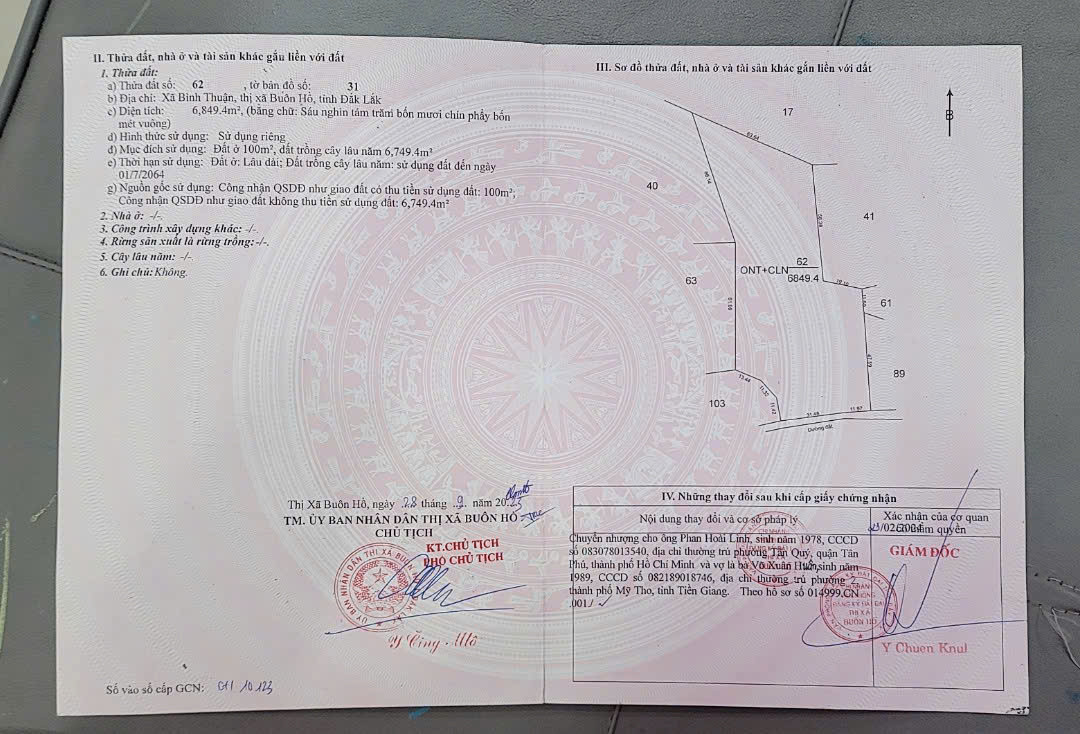 II. Thửa đất, nhà ở và tài sản khác gắn liền với đất
1. Thửa đất:
a) Thửa đất số: 62 , tờ bản đồ số: 31
b) Địa chỉ: Xã Bình Thuận, thị xã Buôn Hồ, tỉnh Đắk Lắk
c) Diện tích: 6,849.4m², (bằng chữ: Sáu nghìn tám trăm bốn mươi chín phẩy bốn
mét vuông)
d) Hình thức sử dụng: Sử dụng riêng
đ) Mục đích sử dụng: Đất ở 100m², đất trồng cây lâu năm 6,749.4m²
e) Thời hạn sử dụng: Đất ở: Lâu dài; Đất trồng cây lâu năm: sử dụng đất đến ngày
01/7/2064
g) Nguồn gốc sử dụng: Công nhận QSDĐ như giao đất có thu tiền sử dụng đất: 100m²;
Công nhận QSDĐ như giao đất không thu tiền sử dụng đất: 6,749.4m²
2. Nhà ở: -/-.
3. Công trình xây dựng khác: -/-.
4. Rừng sản xuất là rừng trồng: -/-.
5. Cây lâu năm: -/-
6. Ghi chú: Không.
Thị Xã Buôn Hồ, ngày 28 tháng 9 năm 2023
TM. ỦY BAN NHÂN DÂN THỊ XÃ BUÔN HỒ
CHỦ TỊCH
KT.CHỦ TỊCH
PHÓ CHỦ TỊCH
Số vào sổ cấp GCN: CH 10123
III. Sơ đồ thửa đất, nhà ở và tài sản khác gắn liền với đất
B
17
40
41
62
ONT+CLN
6849.4
63
61
89
103
Đường đất
IV. Những thay đổi sau khi cấp giấy chứng nhận
Nội dung thay đổi và cơ sở pháp lý
Xác nhận của cơ quan
có thẩm quyền
Chuyển nhượng cho ông Phan Hoài Linh, sinh năm 1978, CCCD
số 083078013540, địa chỉ thường trú phường Tân Quý, quận Tân
Phú, thành phố Hồ Chí Minh và vợ là bà Võ Xuân Hương, sinh năm
1989, CCCD số 082189018746, địa chỉ thường trú phường 2
thành phố Mỹ Tho, tỉnh Tiền Giang. Theo hồ sơ số 014999.CN
.001/
GIÁM ĐỐC
Y Chuen Knul